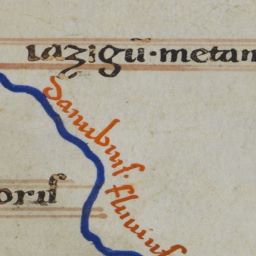 iazigū·metan
danubius·fluuius
oris